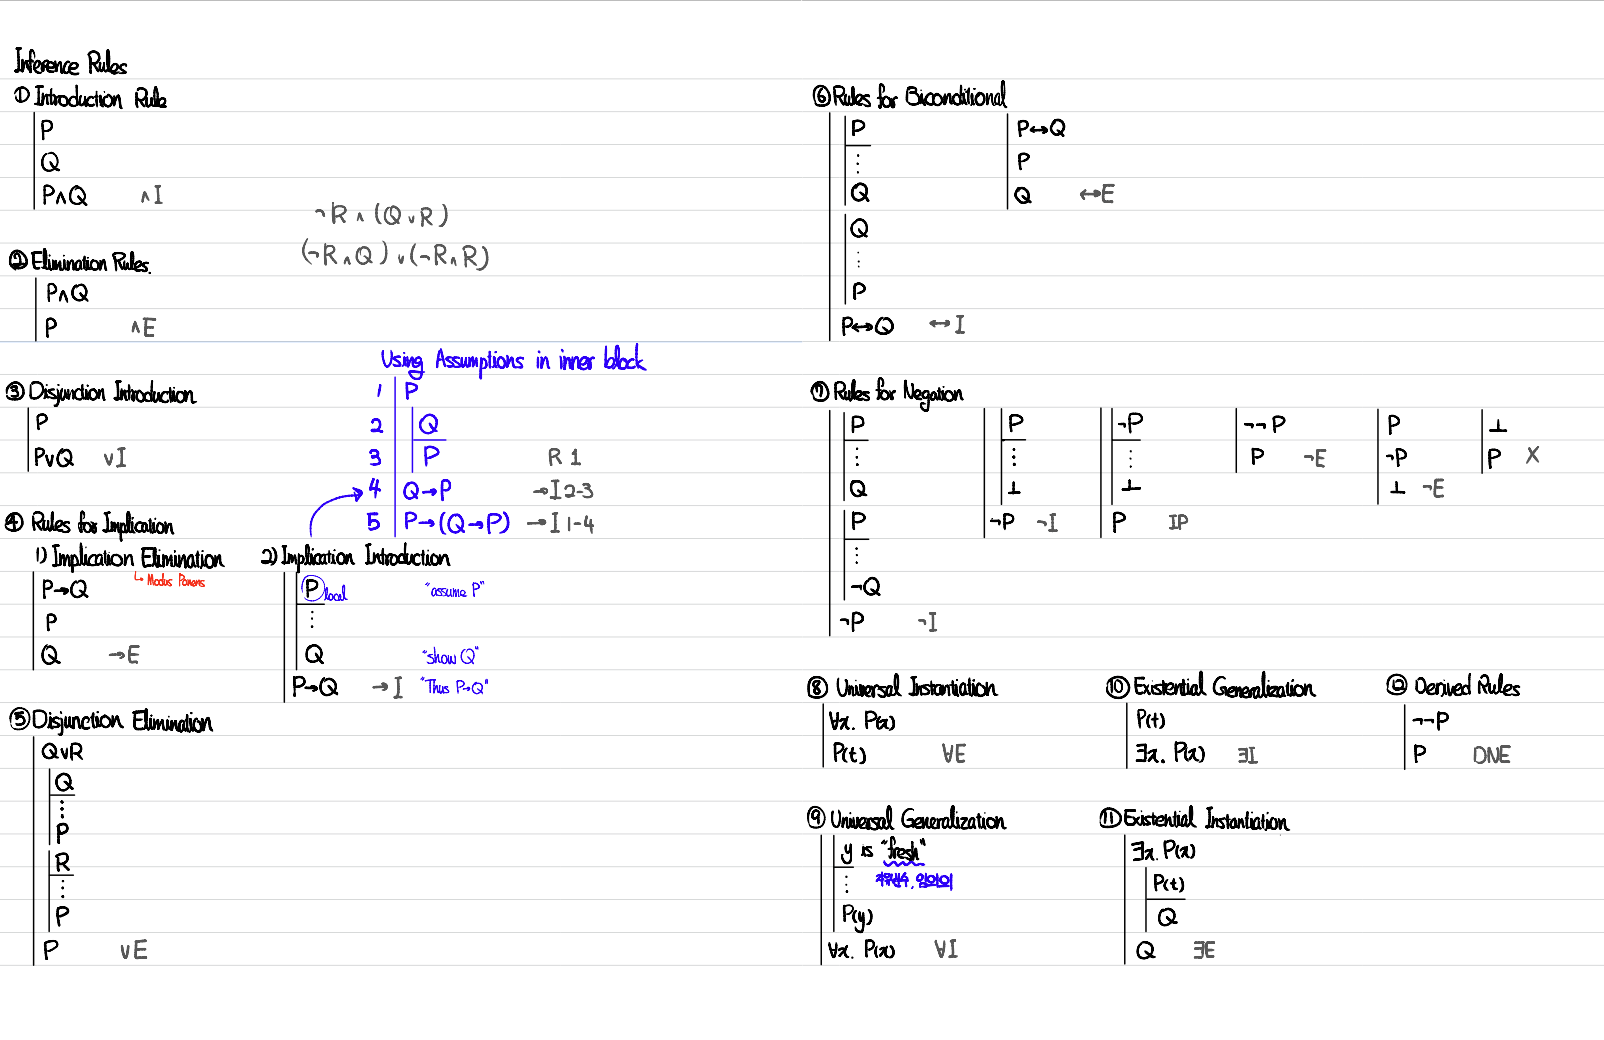 Inference Rules
① Introduction Rule
P
Q
P∧Q ∧I
¬R∧(Q∨R)
(¬R∧Q)∨(¬R∧R)
② Elimination Rules.
P∧Q
P ∧E
③ Disjunction Introduction
P
P∨Q ∨I
Using Assumptions in inner block
1 P
2 Q
3 P R 1
4 Q→P →I 2-3
5 P→(Q→P) →I 1-4
④ Rules for Implication
1) Implication Elimination
↳ Modus Ponens
P→Q
P
Q →E
2) Implication Introduction
P local "assume P"
⋮
Q "show Q"
P→Q →I "Thus P→Q"
⑤ Disjunction Elimination
Q∨R
Q
⋮
P
R
⋮
P
P ∨E
⑥ Rules for Biconditional
P
⋮
Q
Q
⋮
P
P↔Q ↔I
P↔Q
P
Q ↔E
⑦ Rules for Negation
P
⋮
Q
P
⋮
¬Q
¬P ¬I
P
⋮
⊥
¬P ¬I
¬P
⋮
⊥
P IP
¬¬P
P ¬E
P
¬P
⊥ ¬E
⊥
P X
⑧ Universal Instantiation
∀x. P(x)
P(t) ∀E
⑨ Universal Generalization
y is "fresh"
⋮ 자유변수, 임의의
P(y)
∀x. P(x) ∀I
⑩ Existential Generalization
P(t)
∃x. P(x) ∃I
⑪ Existential Instantiation
∃x. P(x)
P(t)
Q
Q ∃E
⑫ Derived Rules
¬¬P
P DNE